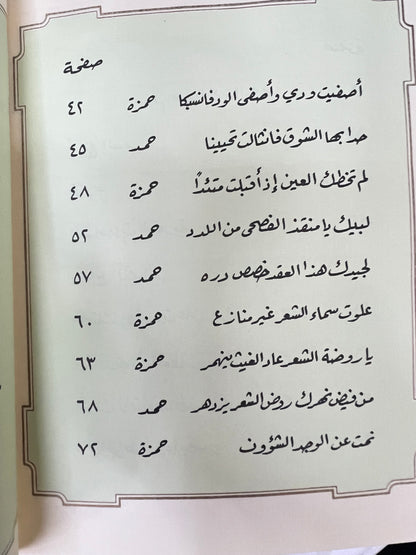 صفحة
أصفيت ودي وأصفى الود فانسبكا حمزة ٤٢
حدا بها الشوق فانثالت تحيينا حمد ٤٥
لم تخطك العين إذ أقبلت متئدًا حمزة ٤٨
لبيك يا منقذ الفصحى من اللدد حمد ٥٢
لجيدك هذا العقد خصص دره حمد ٥٧
علوت سماء الشعر غير منازع حمزة ٦٠
يا روضة الشعر عاد الغيث ينهمر حمزة ٦٣
من فيض نهرك روض الشعر يزدهر حمد ٦٨
نمت عن الوجد الشؤون حمزة ٧٢